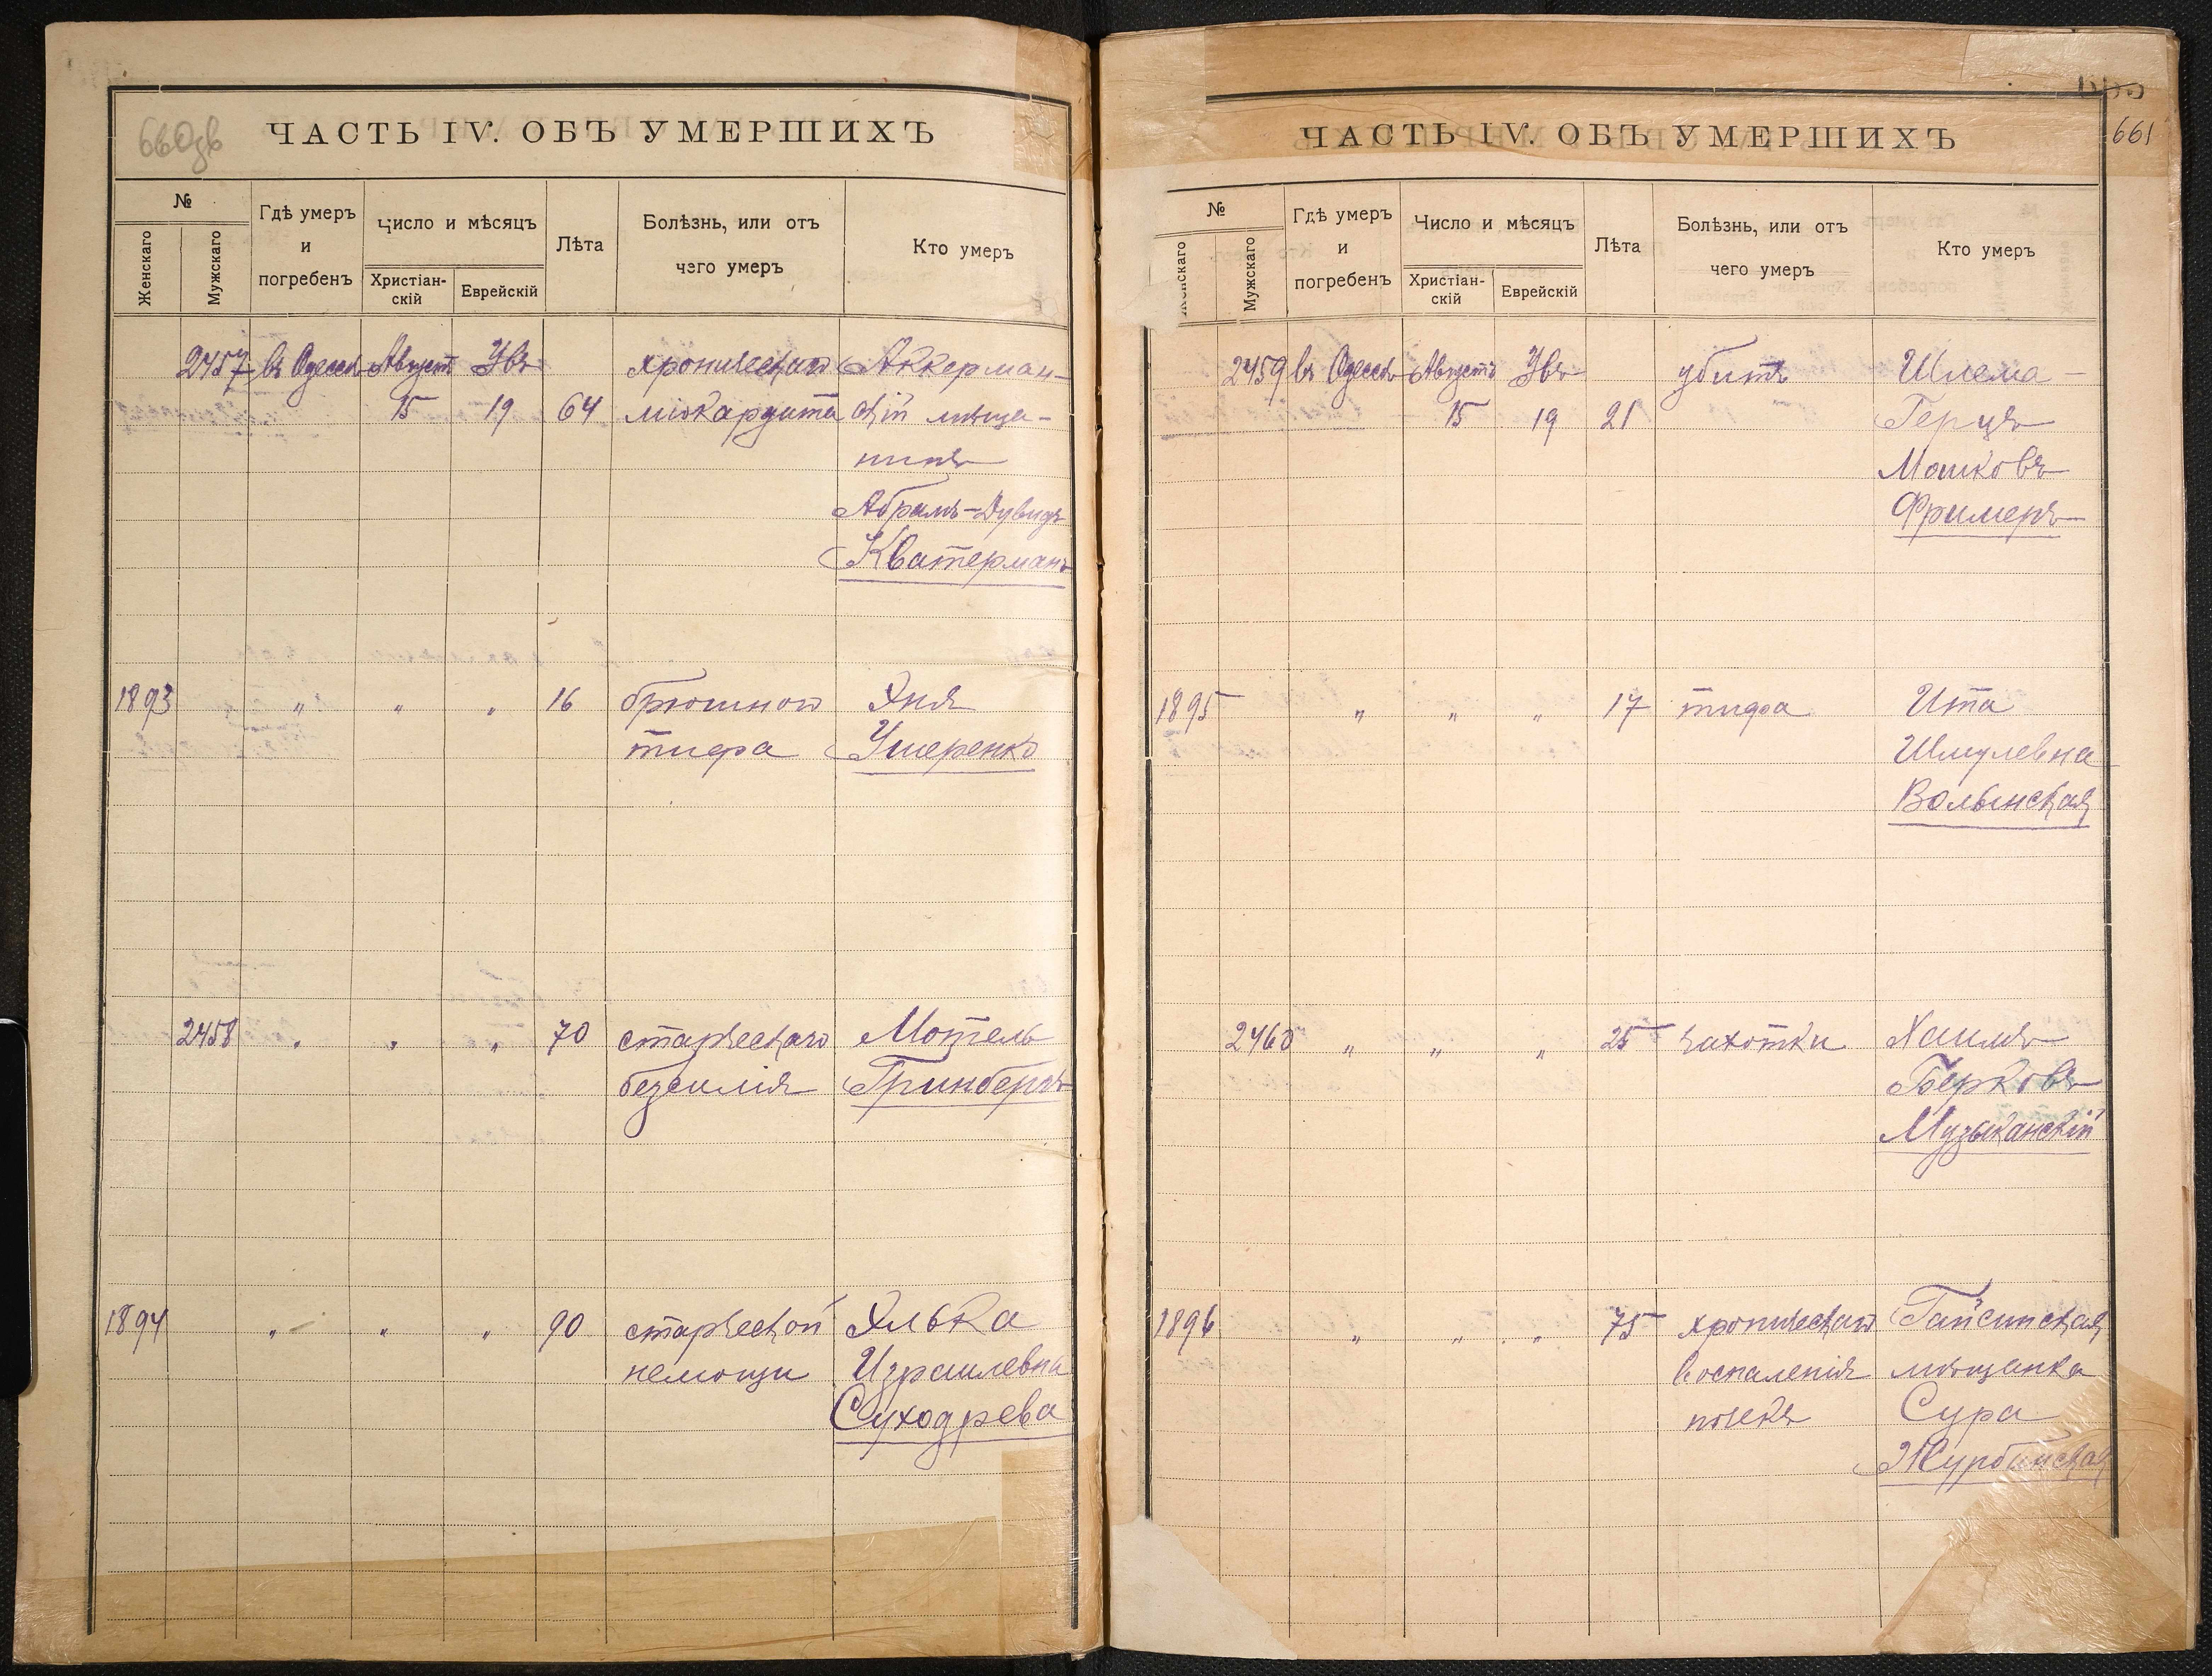 660зв
ЧАСТЬ IV. ОБЪ УМЕРШИХЪ
№
Женскаго
Мужскаго
Гдѣ умеръ
и
погребенъ
Число и мѣсяцъ
Христіан-
скій
Еврейскій
Лѣта
Болѣзнь, или отъ
чего умеръ
Кто умеръ
2457 въ Одессѣ Августъ Увъ хроническаго Аккерман-
15 19 64 міокардита скій мѣща-
нинъ
Абрамъ-Дувидъ
Кватерманъ
1893 " " " 16 брюшного Хня
тифа Ушеренко
2458 " " " 70 старческаго Мотель
безсилія Гринбергъ
1894 " " " 90 старческой Элька
немощи Израилевна
Суходрева
661
ЧАСТЬ IV. ОБЪ УМЕРШИХЪ
№
Женскаго
Мужскаго
Гдѣ умеръ
и
погребенъ
Число и мѣсяцъ
Христіан-
скій
Еврейскій
Лѣта
Болѣзнь, или отъ
чего умеръ
Кто умеръ
2459 въ Одессѣ Августъ Увъ убитъ Шлема-
15 19 21 Герцъ
Мошковъ
Фримеръ
1895 " " " 17 тифа Ита
Шмулевна
Волынская
2460 " " " 25 чахотки Хаимъ
Берковъ
Музыканскій
1896 " " " 75 хроническаго Гайсинская
воспаленія мѣщанка
почекъ Сура
Журбинская